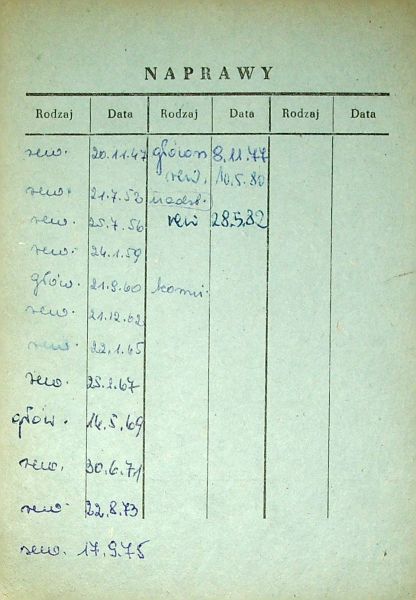 NAPRAWY
Rodzaj Data Rodzaj Data Rodzaj Data
rew. 20.11.47 główna 8.11.77
rew. 10.5.80
rew. 21.7.52 nadzw.
rew. 25.7.56 rew 28.5.82
rew. 24.1.59
głów. 21.9.60 komis.
rew. 21.12.62
rew. 22.1.65
rew. 25.2.67
głów. 14.5.69
rew. 30.6.71
rew. 22.8.73
rew. 17.9.75